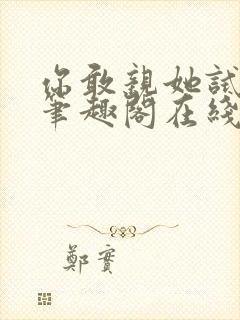 你敢親她試
筆趣閣在綫
鄭實